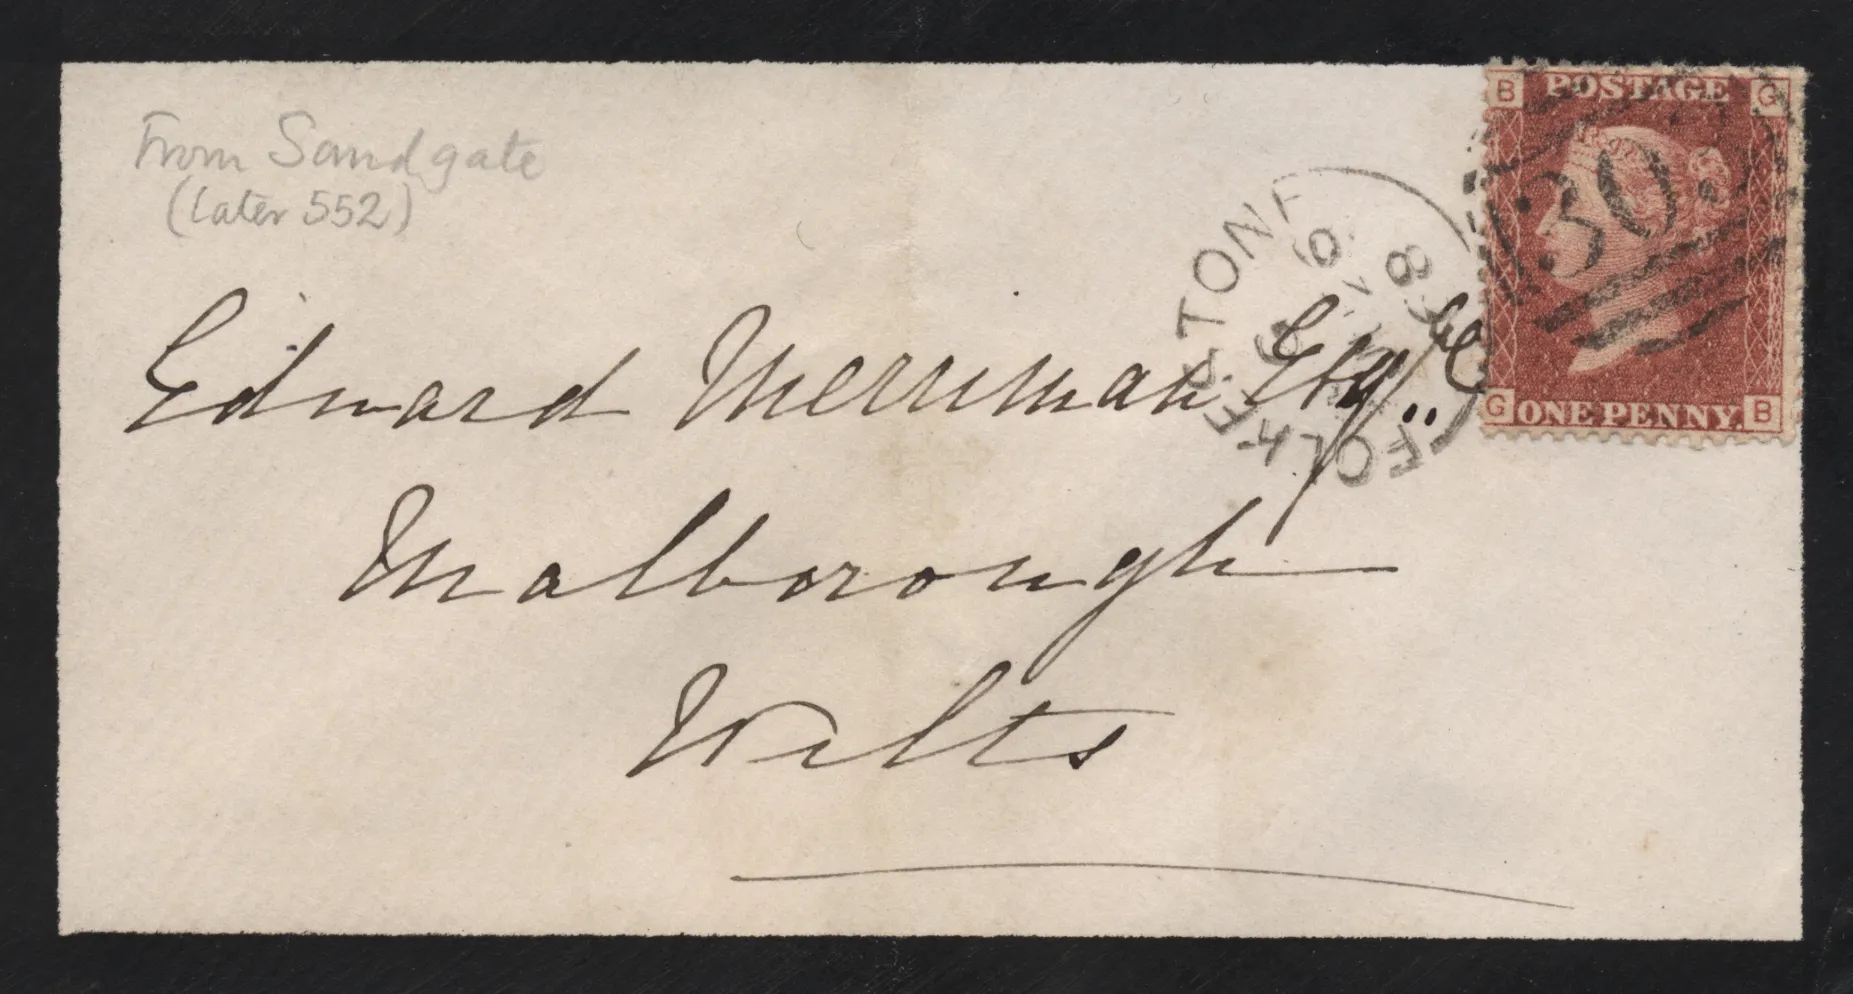 From Sandgate
(later 552)
B POSTAGE G
30
G ONE PENNY. B
FOLKESTONE
Edward Merriman Esqre..
Malborough
Wilts